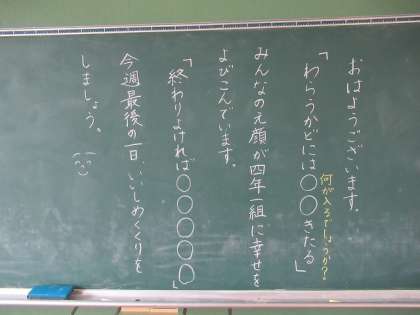 おはようございます。
「わらうかどには○○きたる」
何が入るでしょうか？
みんなの元顔が四年一組に幸せを
よびこんでいます。
「終わりよければ○○○○○」
今週最後の一日、いいしめくくりを
しましょう。